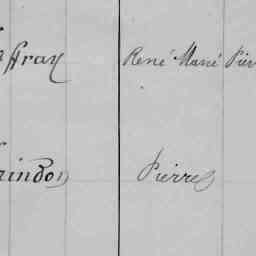 ffray René Marié Pier
rindon Pierre